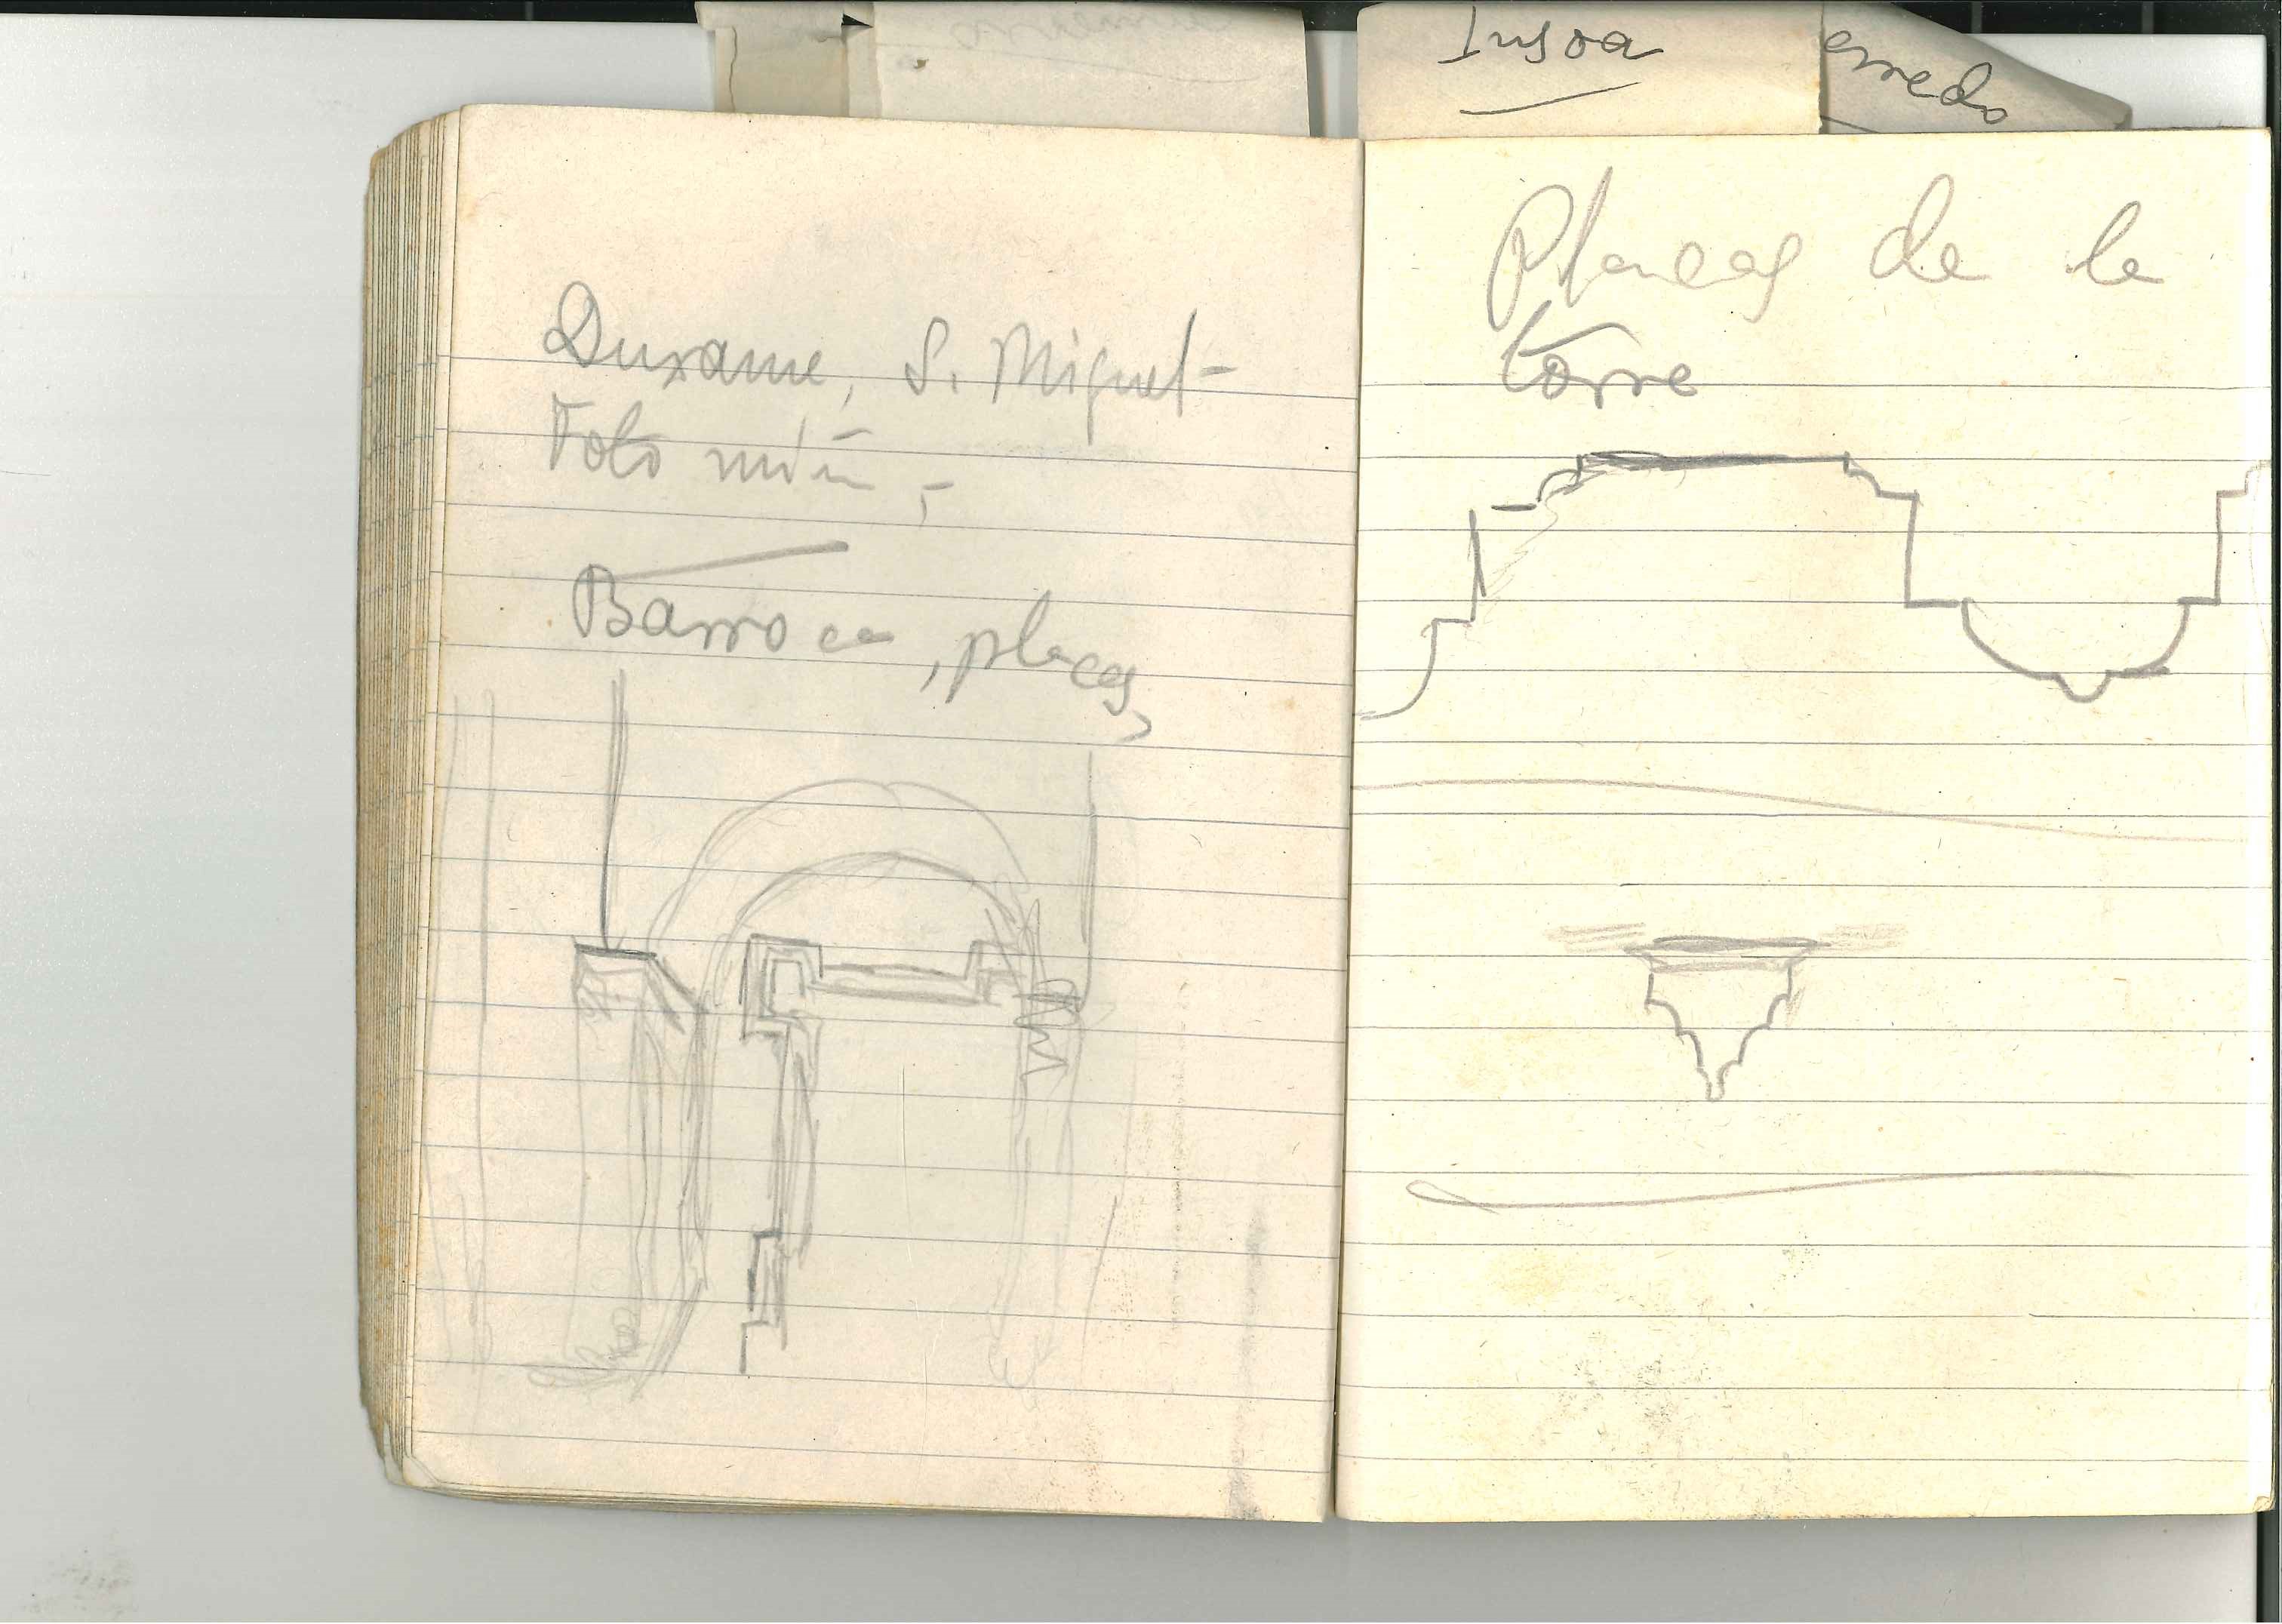 Insoa
Duxame, S. Miguel-
Foto núm,-
Barroca, placas,
Placas de la
torre